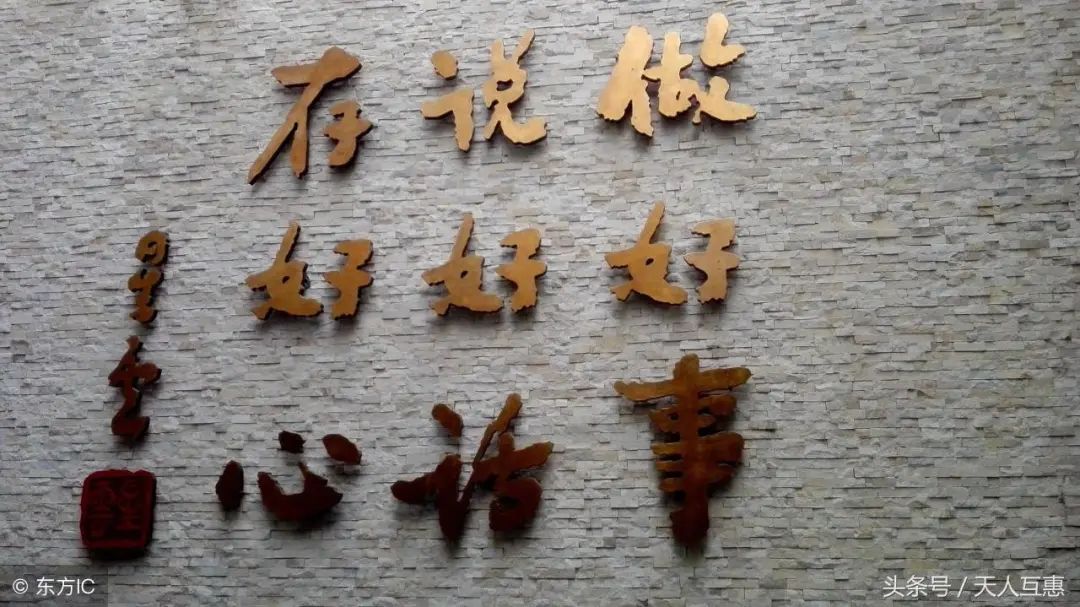 做好事
说好话
存好心
星云
© 东方IC
头条号 / 天人互惠